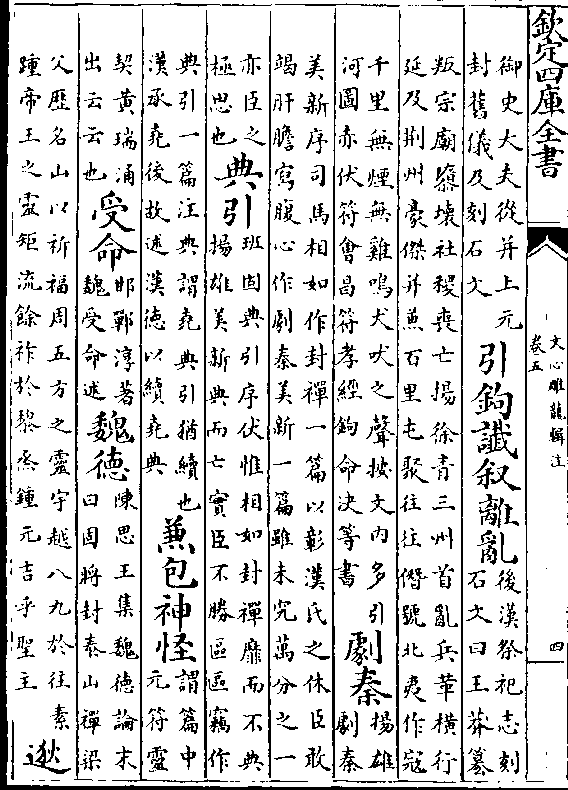 欽定四庫全書
文心雕龍輯注
卷五
四
御史大夫從并上元
封舊儀及刻石文
引鉤讖叙離亂
後漢祭祀志刻
石文曰王莽簒
叛宗廟隳壞社稷喪亡揚徐青三州首亂兵革橫行
延及荆州豪傑并兼百里屯聚往往僭號北夷作寇
千里無煙無雞鳴犬吠之聲按文内多引
河圖赤伏符會昌符孝經鉤命決等書
劇秦
揚雄
劇秦
美新序司馬相如作封禪一篇以彰漢氏之休臣敢
竭肝膽寫腹心作劇秦美新一篇雖未究萬分之一
亦臣之
極思也
典引
班固典引序伏惟相如封禪靡而不典
揚雄美新典而亡實臣不勝區區竊作
典引一篇注典謂堯典引猶續也
漢承堯後故述漢德以續堯典
兼包神怪
謂篇中
元符靈
契黃瑞涌
出云云也
受命
邯鄲淳著
魏受命述
魏德
陳思王集魏德論末
曰固將封泰山禪梁
父歷名山以祈福周五方之靈宇越八九於往素
踵帝王之靈矩流餘祚於黎烝鍾元吉乎聖主
逖